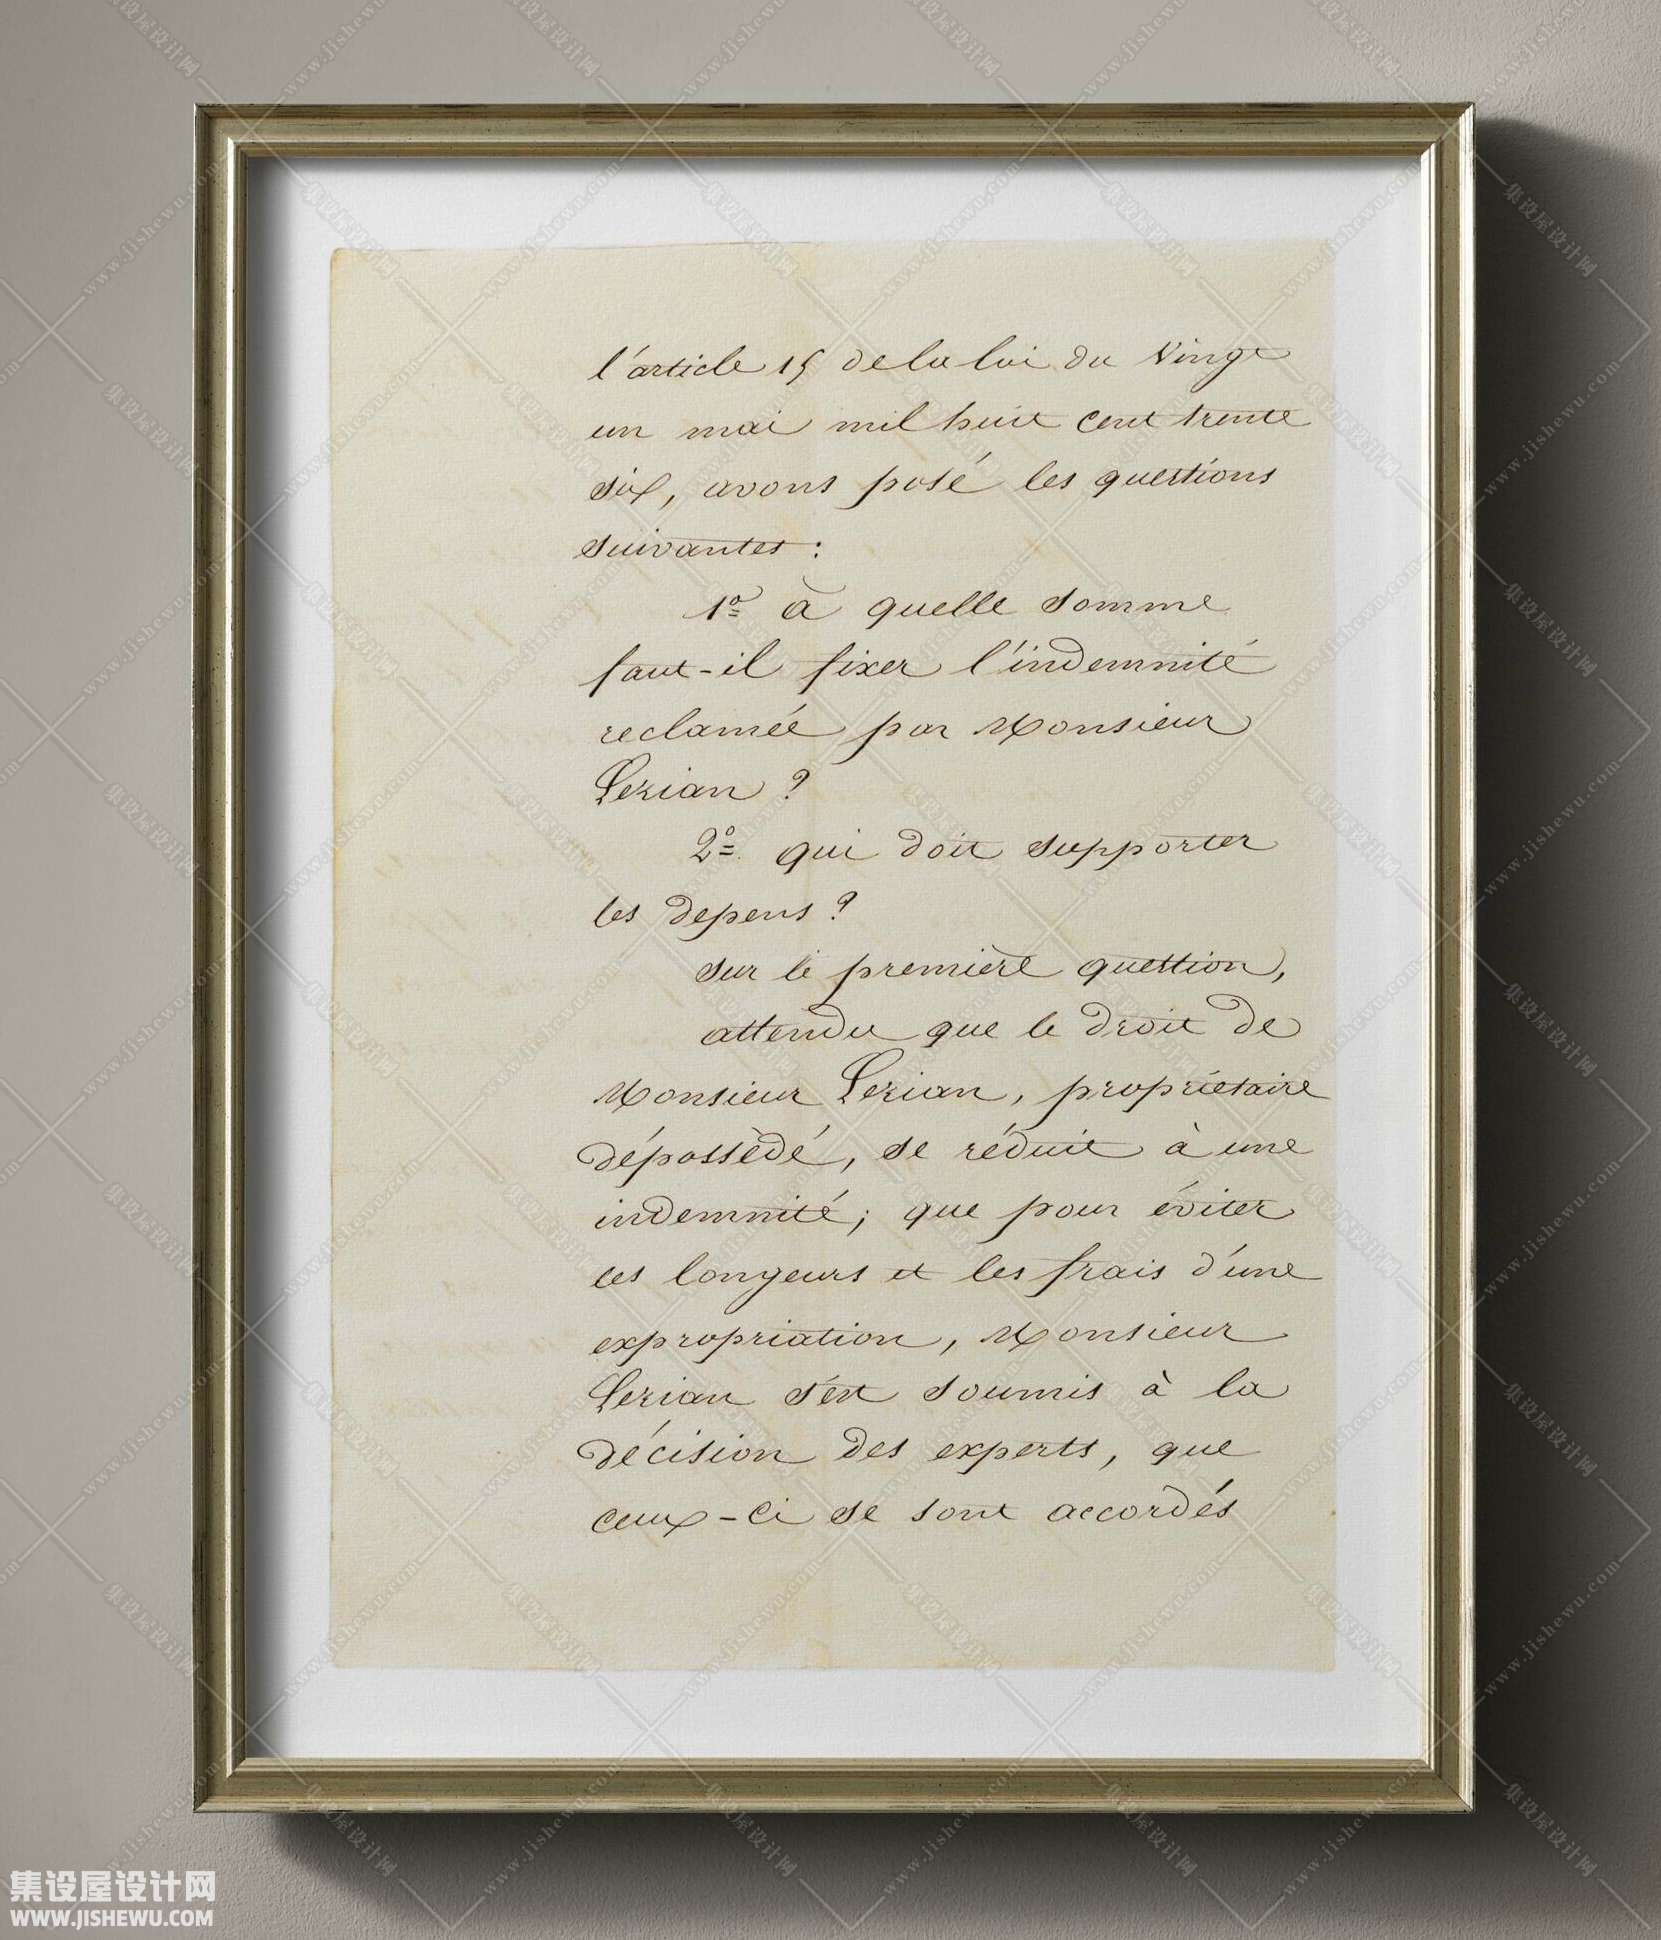 l'article 15 de la loi du Vingt
un mai mil huit cent trente
six, avons posé les questions
suivantes :
1º à quelle somme
faut-il fixer l'indemnité
reclamée par Monsieur
Lezian ?
2º qui doit supporter
les depens ?
sur le première question,
attendu que le droit de
Monsieur Lezian, propriétaire
dépossédé, se réduit à une
indemnité; que pour éviter
les longeurs et les frais d'une
expropriation, Monsieur
Lezian s'est soumis à la
décision des experts, que
ceux-ci se sont accordés
集设屋设计网
WWW.JISHEWU.COM